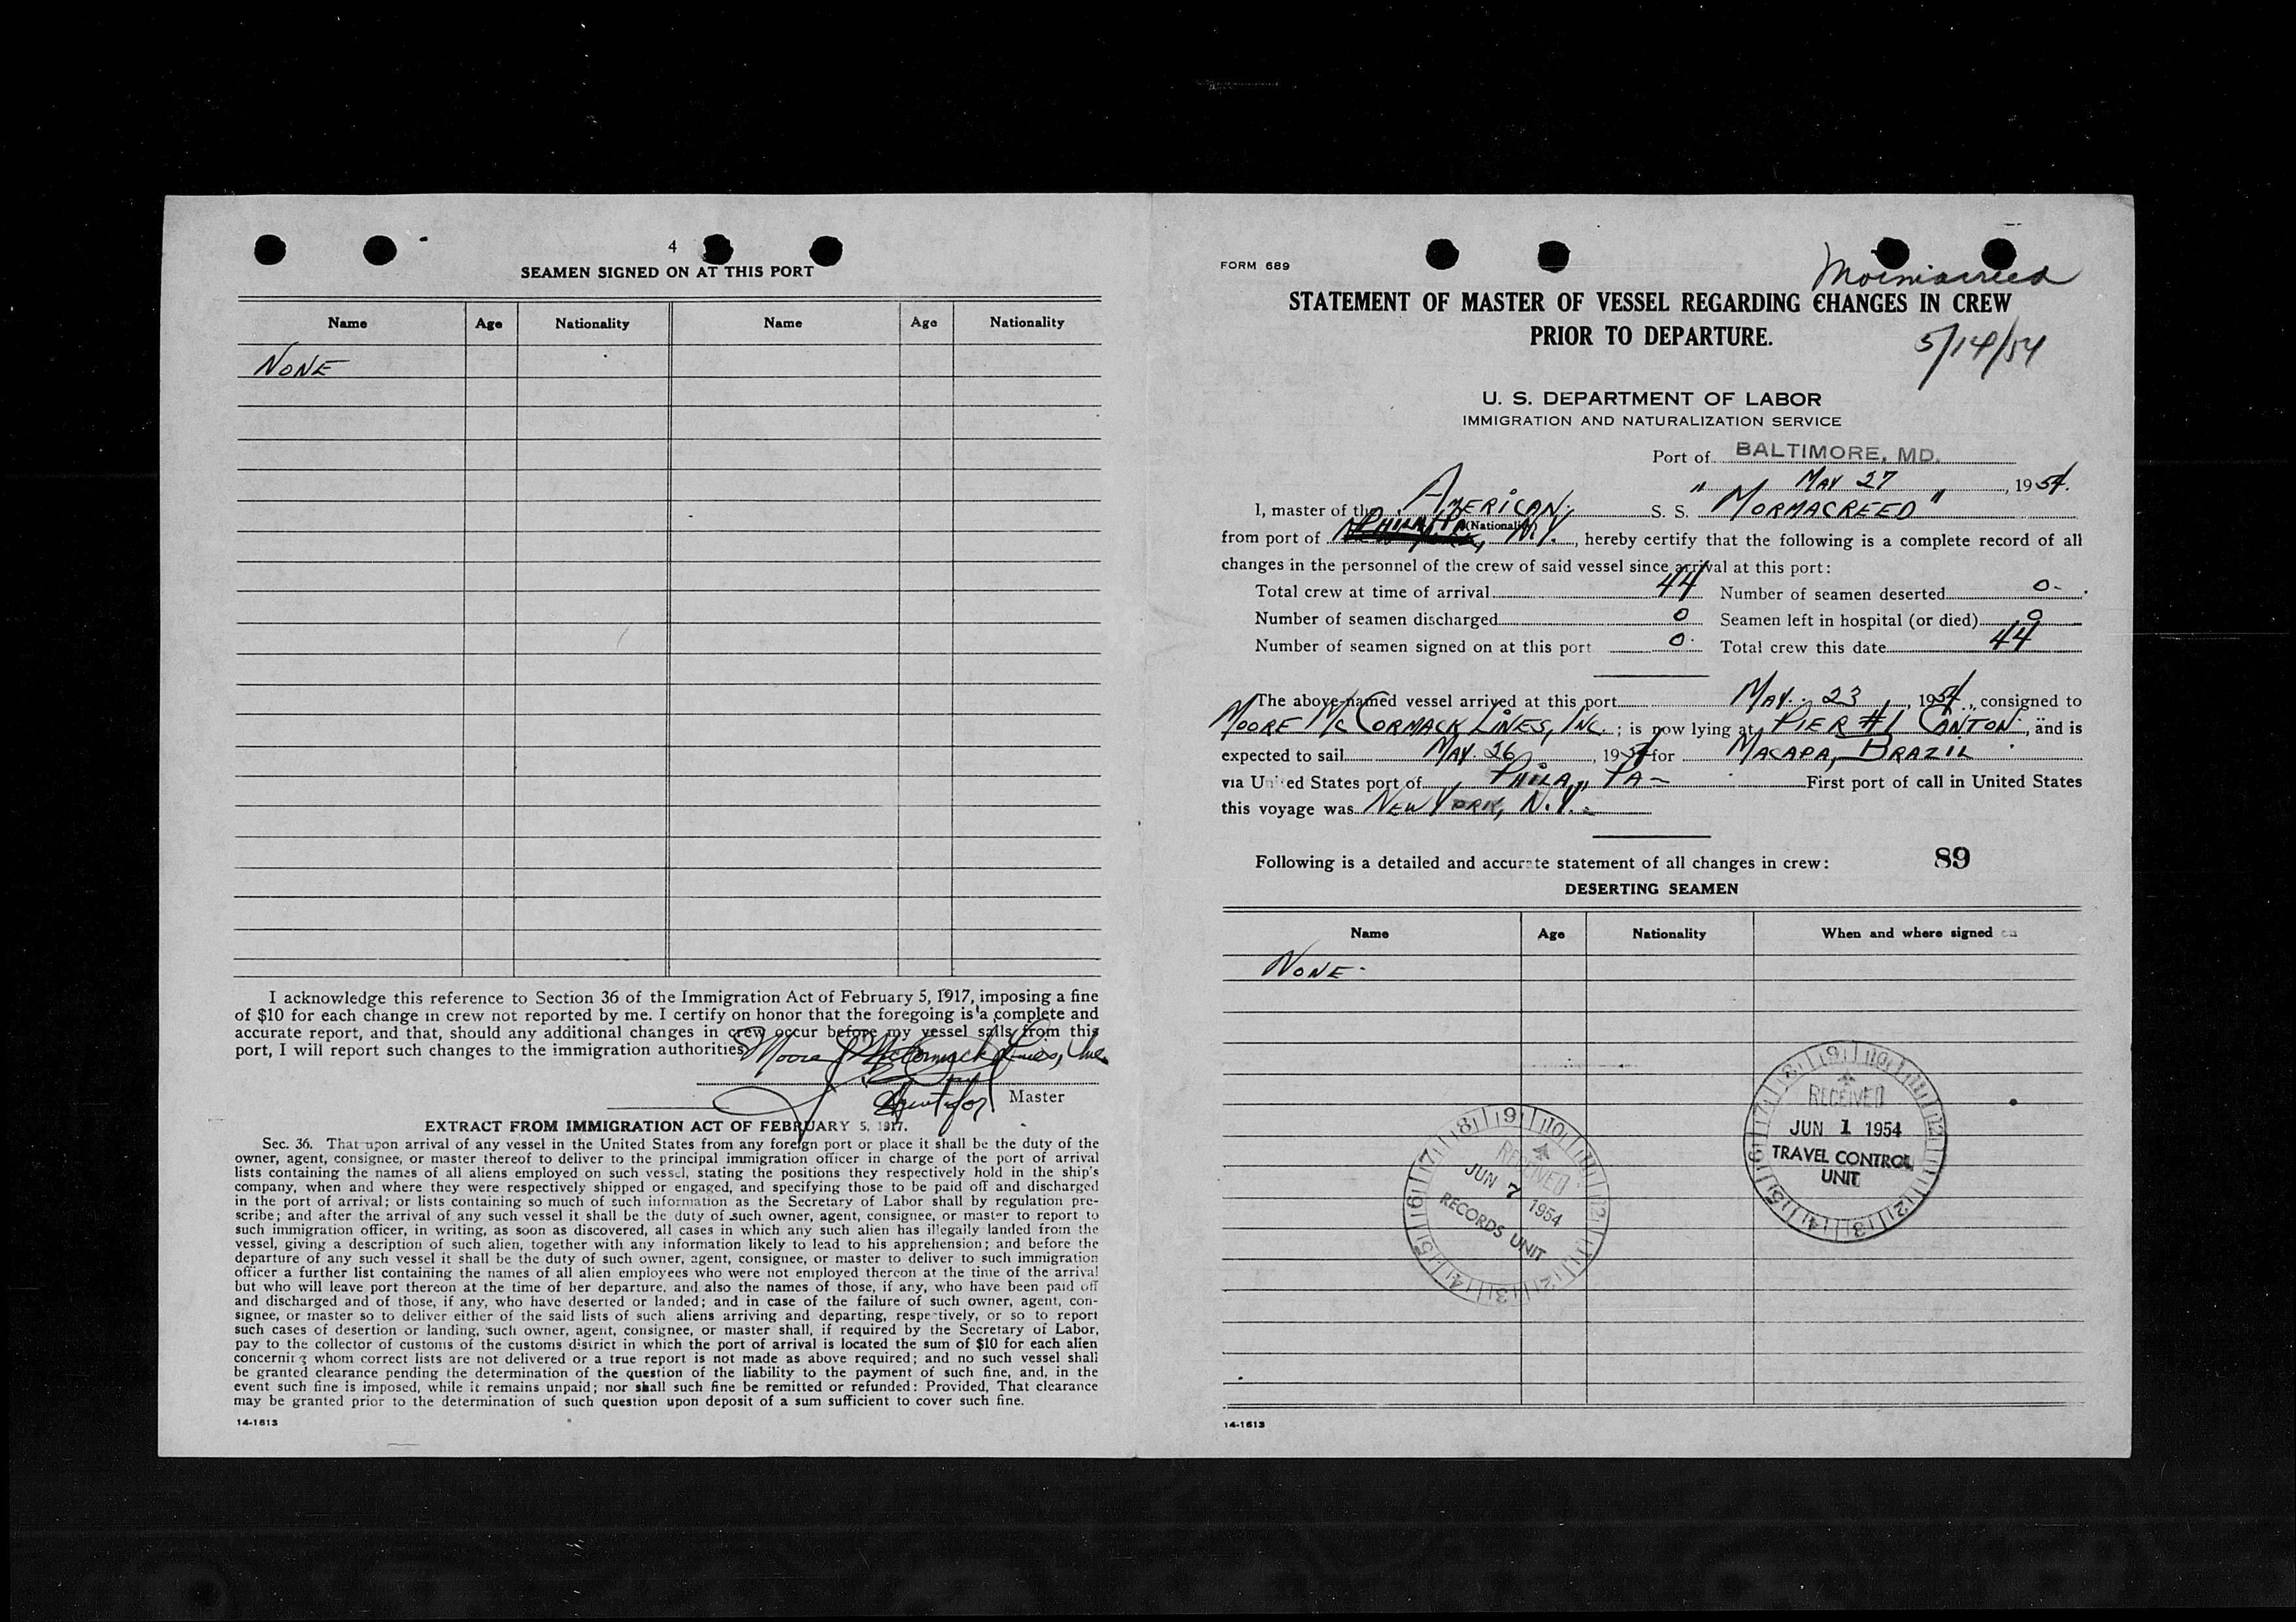 4
SEAMEN SIGNED ON AT THIS PORT
Name Age Nationality Name Age Nationality
NONE
I acknowledge this reference to Section 36 of the Immigration Act of February 5, 1917, imposing a fine
of $10 for each change in crew not reported by me. I certify on honor that the foregoing is a complete and
accurate report, and that, should any additional changes in crew occur before my vessel sails from this
port, I will report such changes to the immigration authorities.
Moore McCormack Lines, Inc.
Agent for Master
EXTRACT FROM IMMIGRATION ACT OF FEBRUARY 5, 1917.
Sec. 36. That upon arrival of any vessel in the United States from any foreign port or place it shall be the duty of the
owner, agent, consignee, or master thereof to deliver to the principal immigration officer in charge of the port of arrival
lists containing the names of all aliens employed on such vessel, stating the positions they respectively hold in the ship's
company, when and where they were respectively shipped or engaged, and specifying those to be paid off and discharged
in the port of arrival; or lists containing so much of such information as the Secretary of Labor shall by regulation pre-
scribe; and after the arrival of any such vessel it shall be the duty of such owner, agent, consignee, or master to report to
such immigration officer, in writing, as soon as discovered, all cases in which any such alien has illegally landed from the
vessel, giving a description of such alien, together with any information likely to lead to his apprehension; and before the
departure of any such vessel it shall be the duty of such owner, agent, consignee, or master to deliver to such immigration
officer a further list containing the names of all alien employees who were not employed thereon at the time of the arrival
but who will leave port thereon at the time of her departure, and also the names of those, if any, who have been paid off
and discharged and of those, if any, who have deserted or landed; and in case of the failure of such owner, agent, con-
signee, or master so to deliver either of the said lists of such aliens arriving and departing, respectively, or so to report
such cases of desertion or landing, such owner, agent, consignee, or master shall, if required by the Secretary of Labor,
pay to the collector of customs of the customs district in which the port of arrival is located the sum of $10 for each alien
concerning whom correct lists are not delivered or a true report is not made as above required; and no such vessel shall
be granted clearance pending the determination of the question of the liability to the payment of such fine, and, in the
event such fine is imposed, while it remains unpaid; nor shall such fine be remitted or refunded: Provided, That clearance
may be granted prior to the determination of such question upon deposit of a sum sufficient to cover such fine.
14-1613
FORM 689
Mormacreed
STATEMENT OF MASTER OF VESSEL REGARDING CHANGES IN CREW
PRIOR TO DEPARTURE.
5/14/54
U. S. DEPARTMENT OF LABOR
IMMIGRATION AND NATURALIZATION SERVICE
Port of BALTIMORE, MD.
MAY 27, 1954.
I, master of the AMERICAN S. S. "MORMACREED"
(Nationality)
from port of PHILA PA N.Y., hereby certify that the following is a complete record of all
changes in the personnel of the crew of said vessel since arrival at this port:
Total crew at time of arrival 44 Number of seamen deserted 0-
Number of seamen discharged 0 Seamen left in hospital (or died) 0
Number of seamen signed on at this port 0 Total crew this date 44
The above-named vessel arrived at this port MAY. 23, 1954, consigned to
MOORE McCORMACK LINES, INC.; is now lying at PIER #1 CANTON, and is
expected to sail MAY. 26, 1954 for MACAPA, BRAZIL
via United States port of PHILA, PA- First port of call in United States
this voyage was NEW YORK, N.Y.-
Following is a detailed and accurate statement of all changes in crew: 89
DESERTING SEAMEN
Name Age Nationality When and where signed on
NONE-
RECEIVED
JUN 1 1954
TRAVEL CONTROL
UNIT
RECEIVED
JUN 7 1954
RECORDS UNIT
14-1613